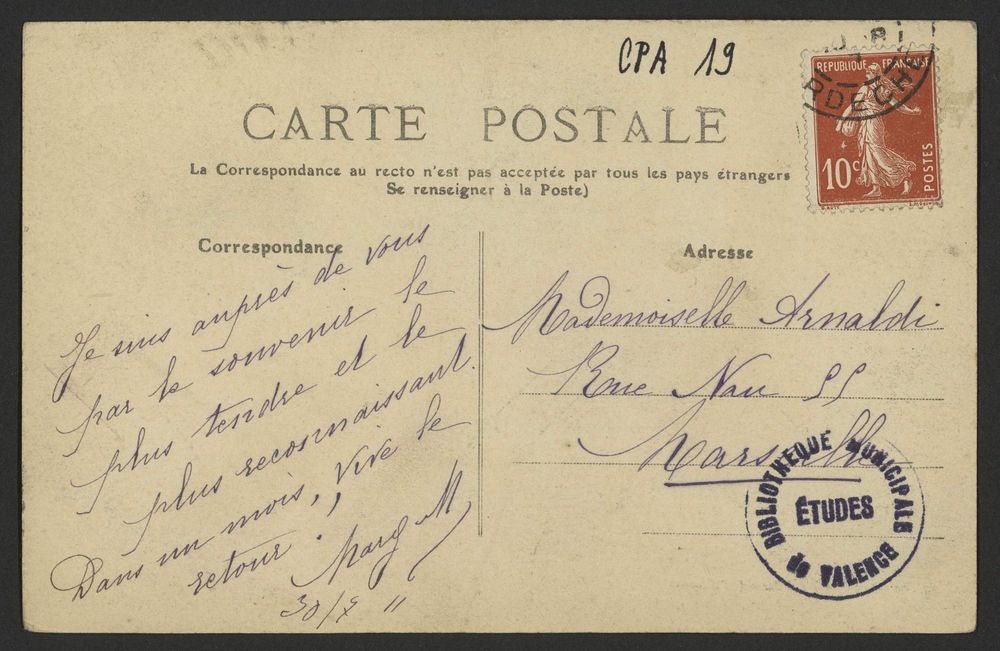 CPA 19
CARTE POSTALE
La Correspondance au recto n'est pas acceptée par tous les pays étrangers
Se renseigner à la Poste)
REPUBLIQUE FRANÇAISE
10c
POSTES
Correspondance
Je suis auprès de vous
par le souvenir le
plus tendre et le
plus reconnaissant.
Dans un mois, vive le
retour !
Marg M
30/7 11
Adresse
Mademoiselle Arnaldi
Rue Nau 55
Marseille
BIBLIOTHEQUE MUNICIPALE
ÉTUDES
de VALENCE